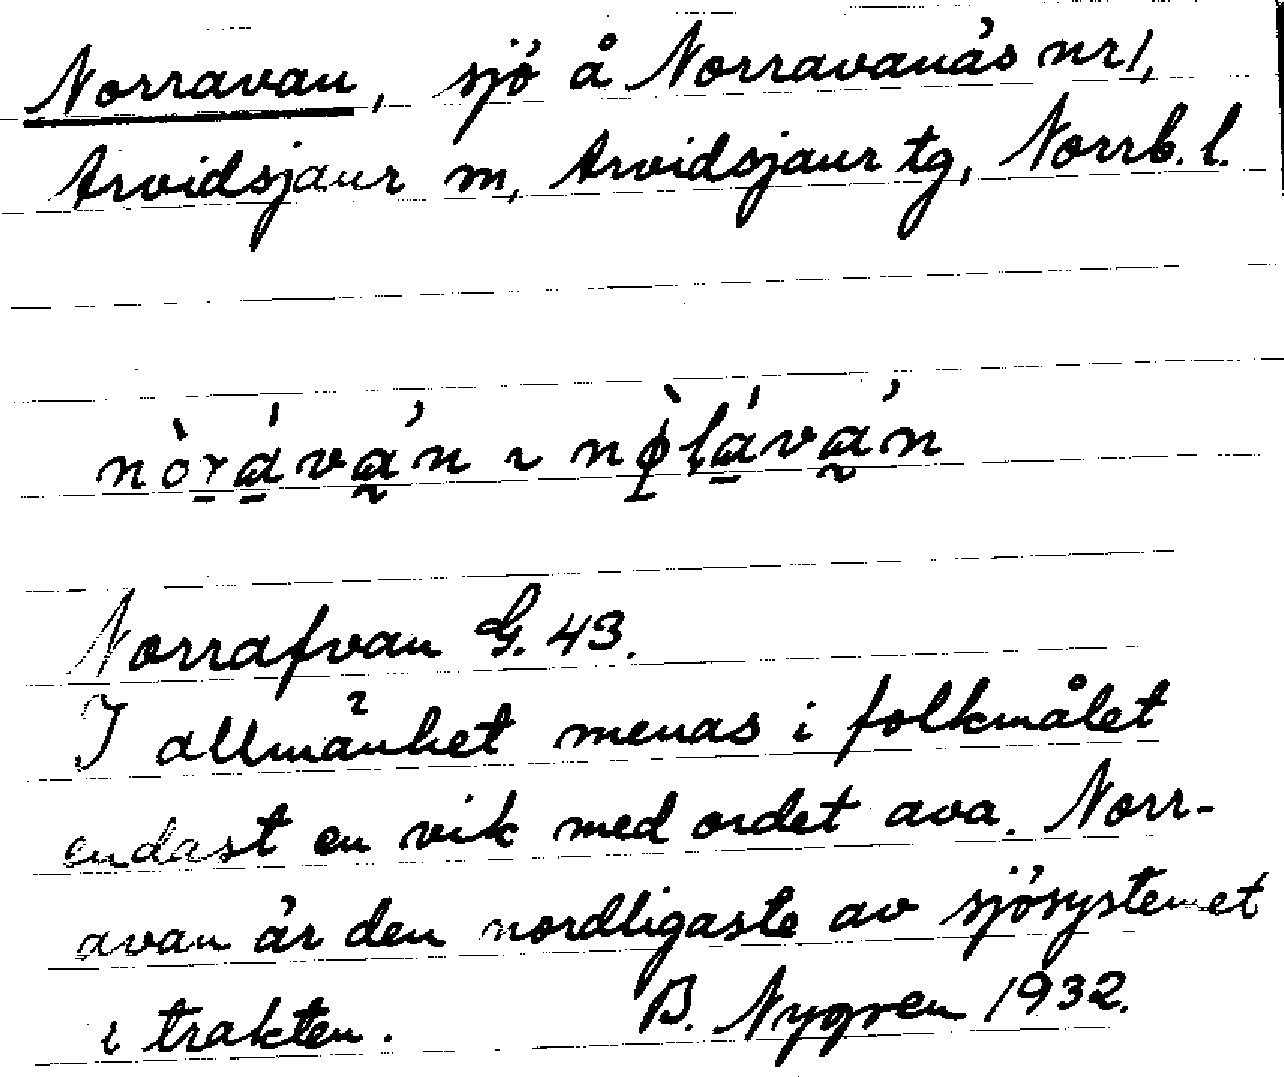 Norravan, sjö å Norravanäs nr 1,
Arvidsjaur m, Arvidsjaur tg, Norrb. l.
nòráván ~ nø̀láván
Norrafvan G. 43.
I allmänhet menas i folkmålet
endast en vik med ordet ava. Norr-
avan är den nordligaste av sjösystemet
i trakten. B. Nygren 1932.